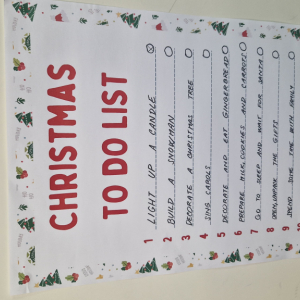 CHRISTMAS
TO DO LIST
1 LIGHT UP A CANDLE
2 BUILD A SNOWMAN
3 DECORATE A CHRISTMAS TREE
4 SING CAROLS
5 DECORATE AND EAT GINGERBREAD
6 PREPARE MILK, COOKIES AND CARROTS
7 GO TO SLEEP AND WAIT FOR SANTA
8 OPEN/UNPACK THE GIFTS
9 SPEND SOME TIME WITH FAMILY
10